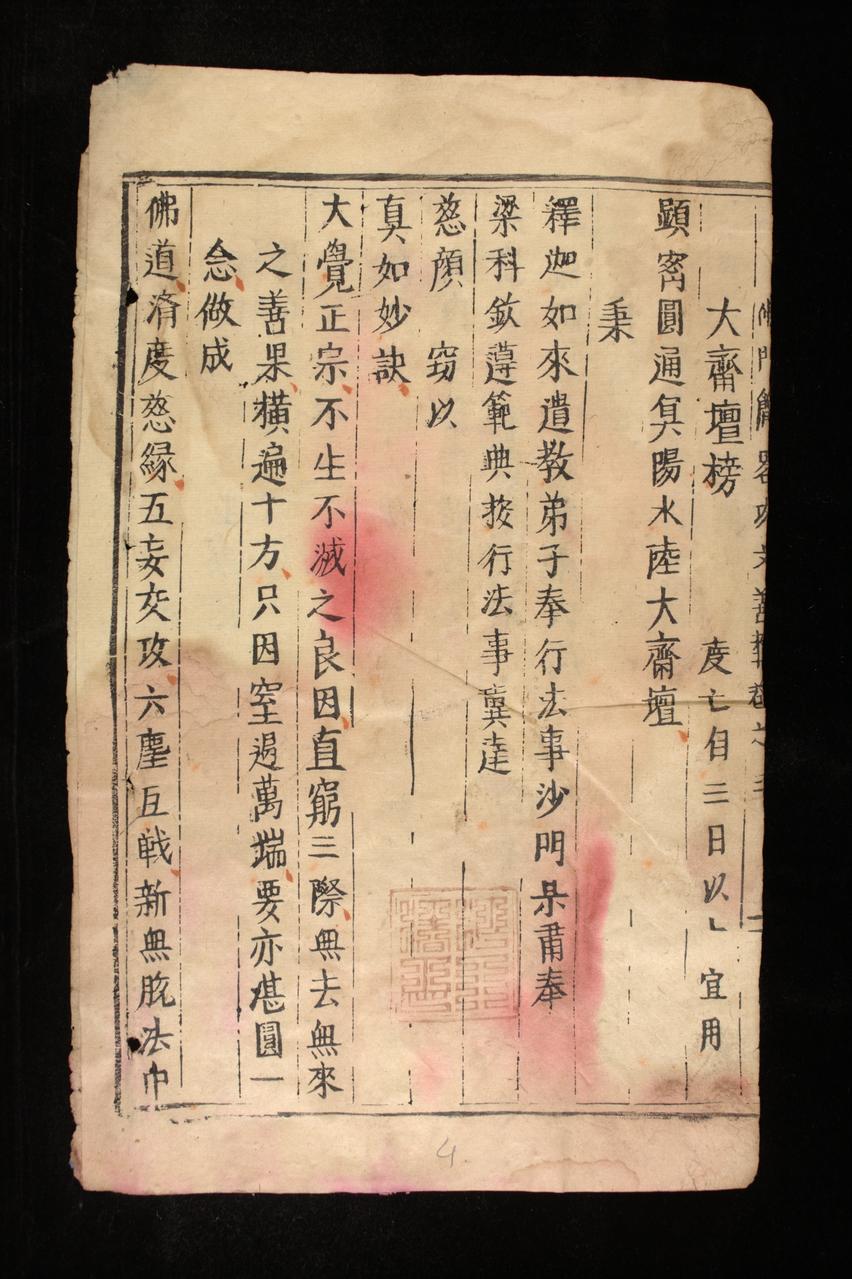 大齋壇榜 度亡自三日以乚宜用
顕宻圓通㝠陽水陸大齋壇
秉
釋迦如來遺教弟子奉行法事沙門某肅奉
梁科欽遵範典按行法事兾達
慈顔 窃以
真如妙訣
大覺正宗不生不滅之良因直窮三際無去無來
之善果横遍十方只因窒過萬端要亦堪圓一
念做成
佛道濟度慈縁五妄交攻六塵互戰新無脫法巾